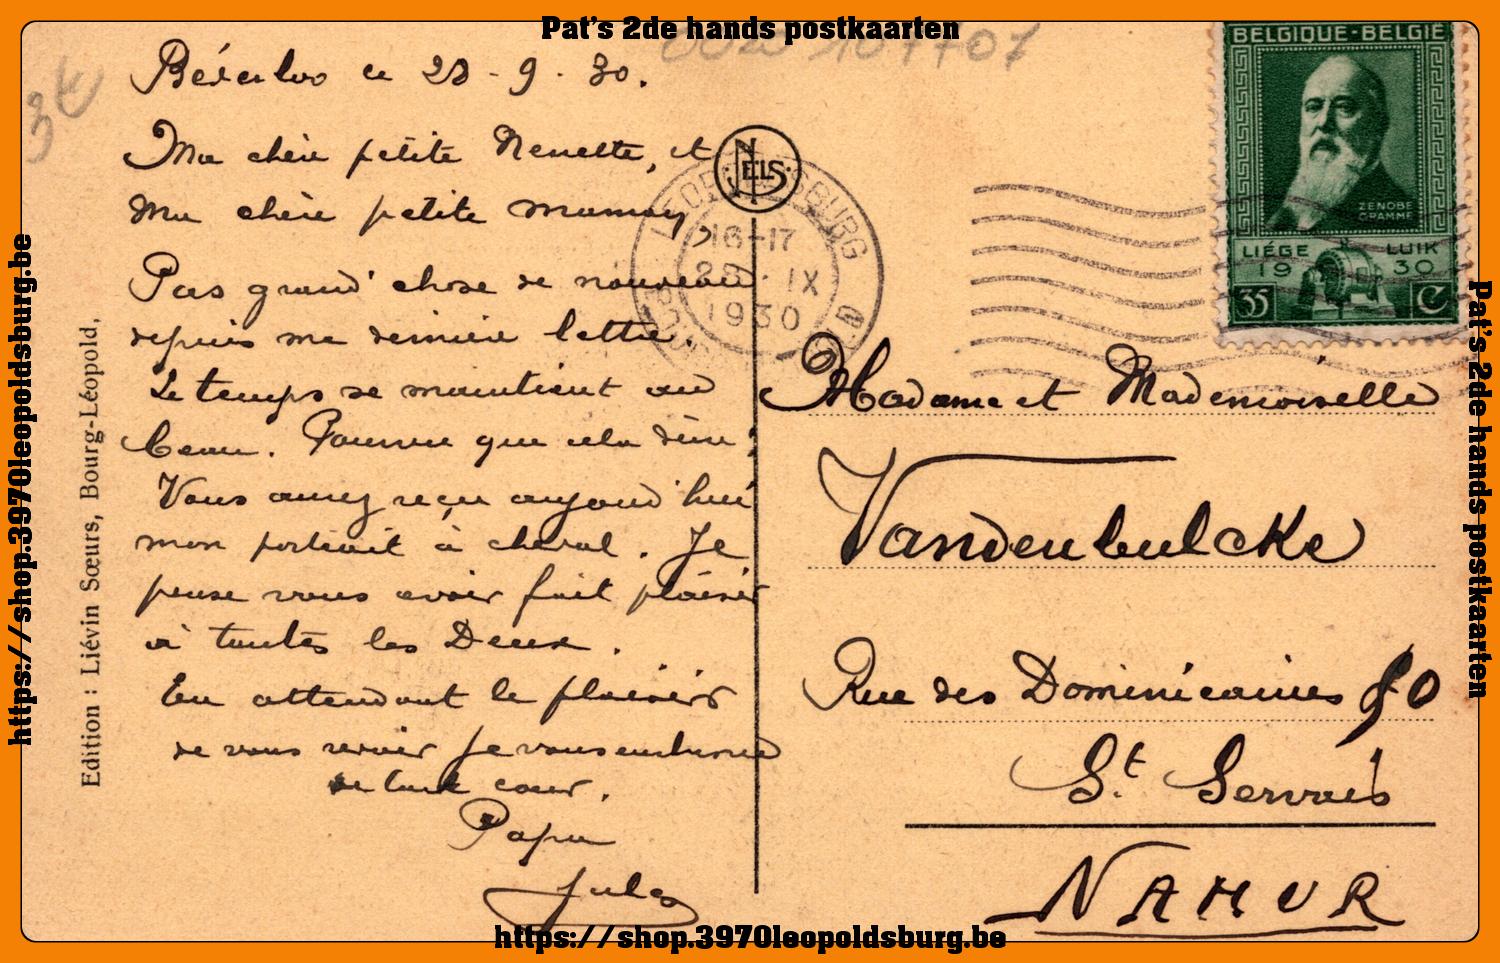 Pat's 2de hands postkaarten
0020107707
3€
Béverloo ce 28-9-30.
Ma chère petite Nenette, et
Ma chère petite maman,
Pas grand'chose de nouveau
depuis ma dernière lettre.
Le temps se maintient au
beau. Pourvu que cela dure!
Vous aurez reçu aujourd'hui
mon portrait à cheval. Je
pense vous avoir fait plaisir
à toutes les Deux.
En attendant le plaisir
de vous revoir je vous embrasse
de tout cœur.
Papa
Jules
Edition : Liévin Sœurs, Bourg-Léopold,
NELS
LEOPOLDSBURG
16-17
28 · IX
1930
BELGIQUE-BELGIË
ZENOBE
GRAMME
LIÉGE LUIK
19 30
35 C
Madame et Mademoiselle
Vandenbulcke
Rue des Dominicaines 80
St. Servais
NAMUR
https://shop.3970leopoldsburg.be
https://shop.3970leopoldsburg.be
Pat's 2de hands postkaarten